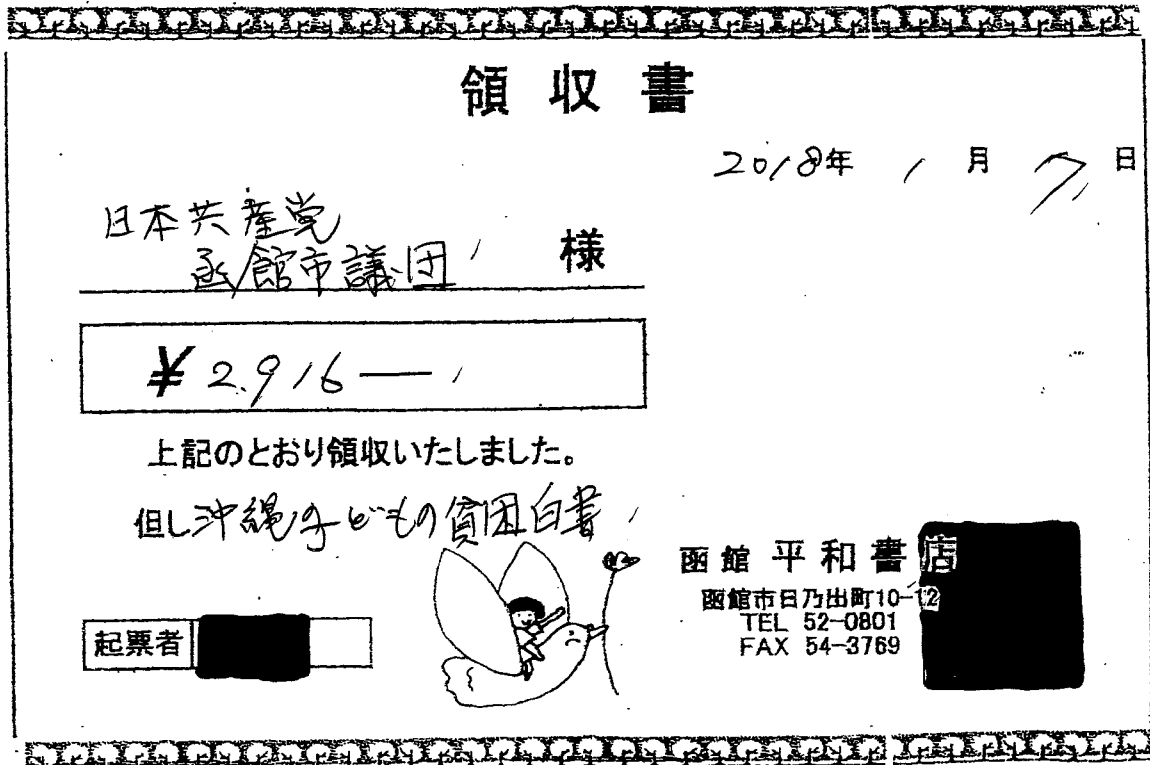 領収書
2018年 1月 7日
日本共産党
函館市議団
様
¥2.916―
上記のとおり領収いたしました。
但し沖縄子どもの貧困白書
函館 平和書店
函館市日乃出町10-12
TEL 52-0801
FAX 54-3769
起票者